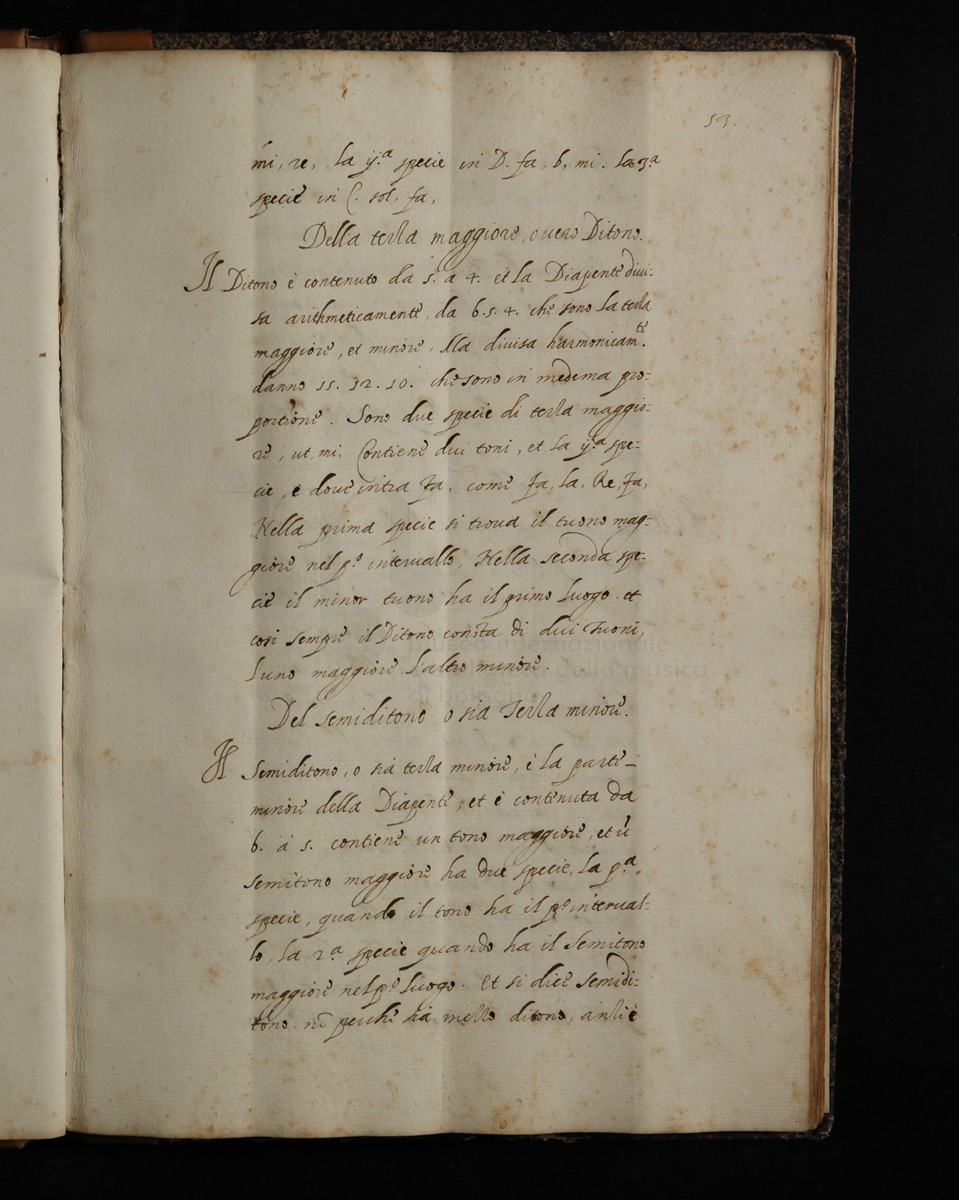 53.
mi, re, la 2.ª specie in D. fa, b, mi. la 3ª
specie in C. sol, fa,
Della terza maggiore, overo Ditono.
Il Ditono è contenuto da 5. a 4. et la Diapente divi-
sa arithmeticamente, da 6.5.4. che sono la terza
maggiore, et minore, Ma divisa harmonicam.te
danno 15. 12. 10. che sono in medema pro-
portione. Sono due specie di terza maggio-
re, ut, mi, Contiene dui toni, et la 2.ª spe-
cie, è dove intra Fa, come Fa, la, Re, Fa,
Nella prima specie si trova il tuono mag-
giore nel p.º intervallo, Nella seconda spe-
cie il minor tuono ha il primo luogo. et
cosi sempre il Ditono consta di dui Tuoni,
l'uno maggiore l'altro minore.
Del semiditono, o sia Terza minore.
Il Semiditono, o sia terza minore, è la parte
minore della Diapente, et è contenuta da
6. à 5. contiene un tono maggiore, et ũ
semitono maggiore ha due specie, la p.ª,
specie, quando il tono ha il p.º interval-
lo, la 2.ª specie quando ha il Semitono
maggiore nel p.º luogo. Et si dice semidi-
tono. nõ perche sia mezzo ditono, anzi è
museo internazionale
della musica
di bologna